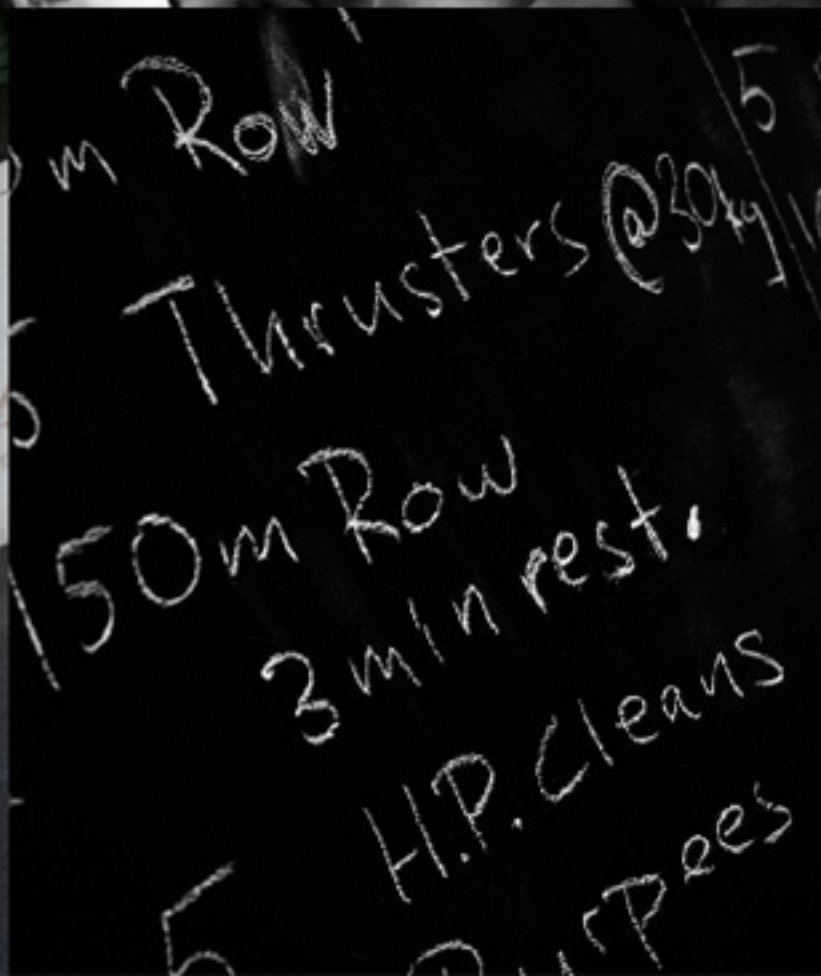 m Row
5 Thrusters @30kg
150m Row
3 min rest.
H.P. Cleans
5 Burpees
5